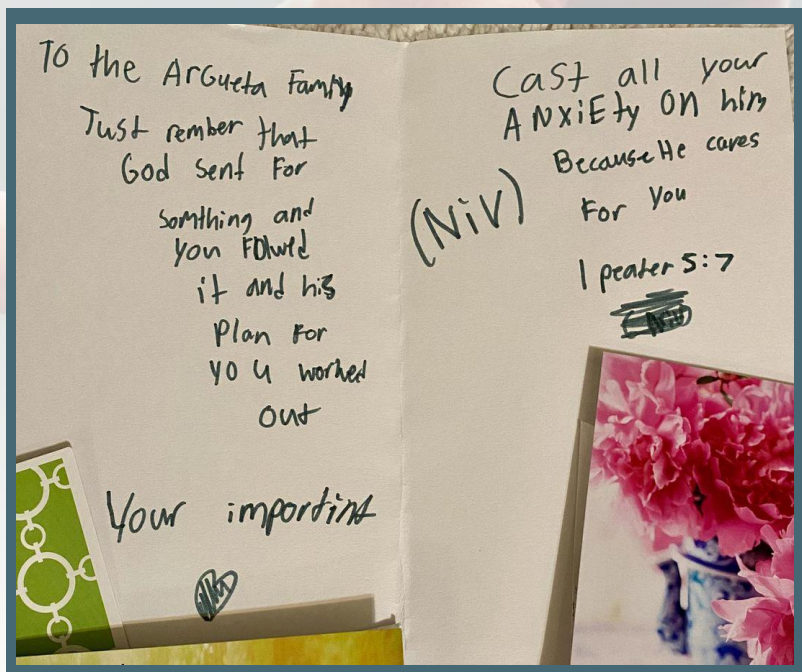 To the Argueta Family
Just rember that
God sent For
somthing and
you Folwed
it and his
Plan For
you worked
out
Your importint
Cast all your
ANxiEty ON him
Because He cares
For you
(NiV)
1 peater 5:7